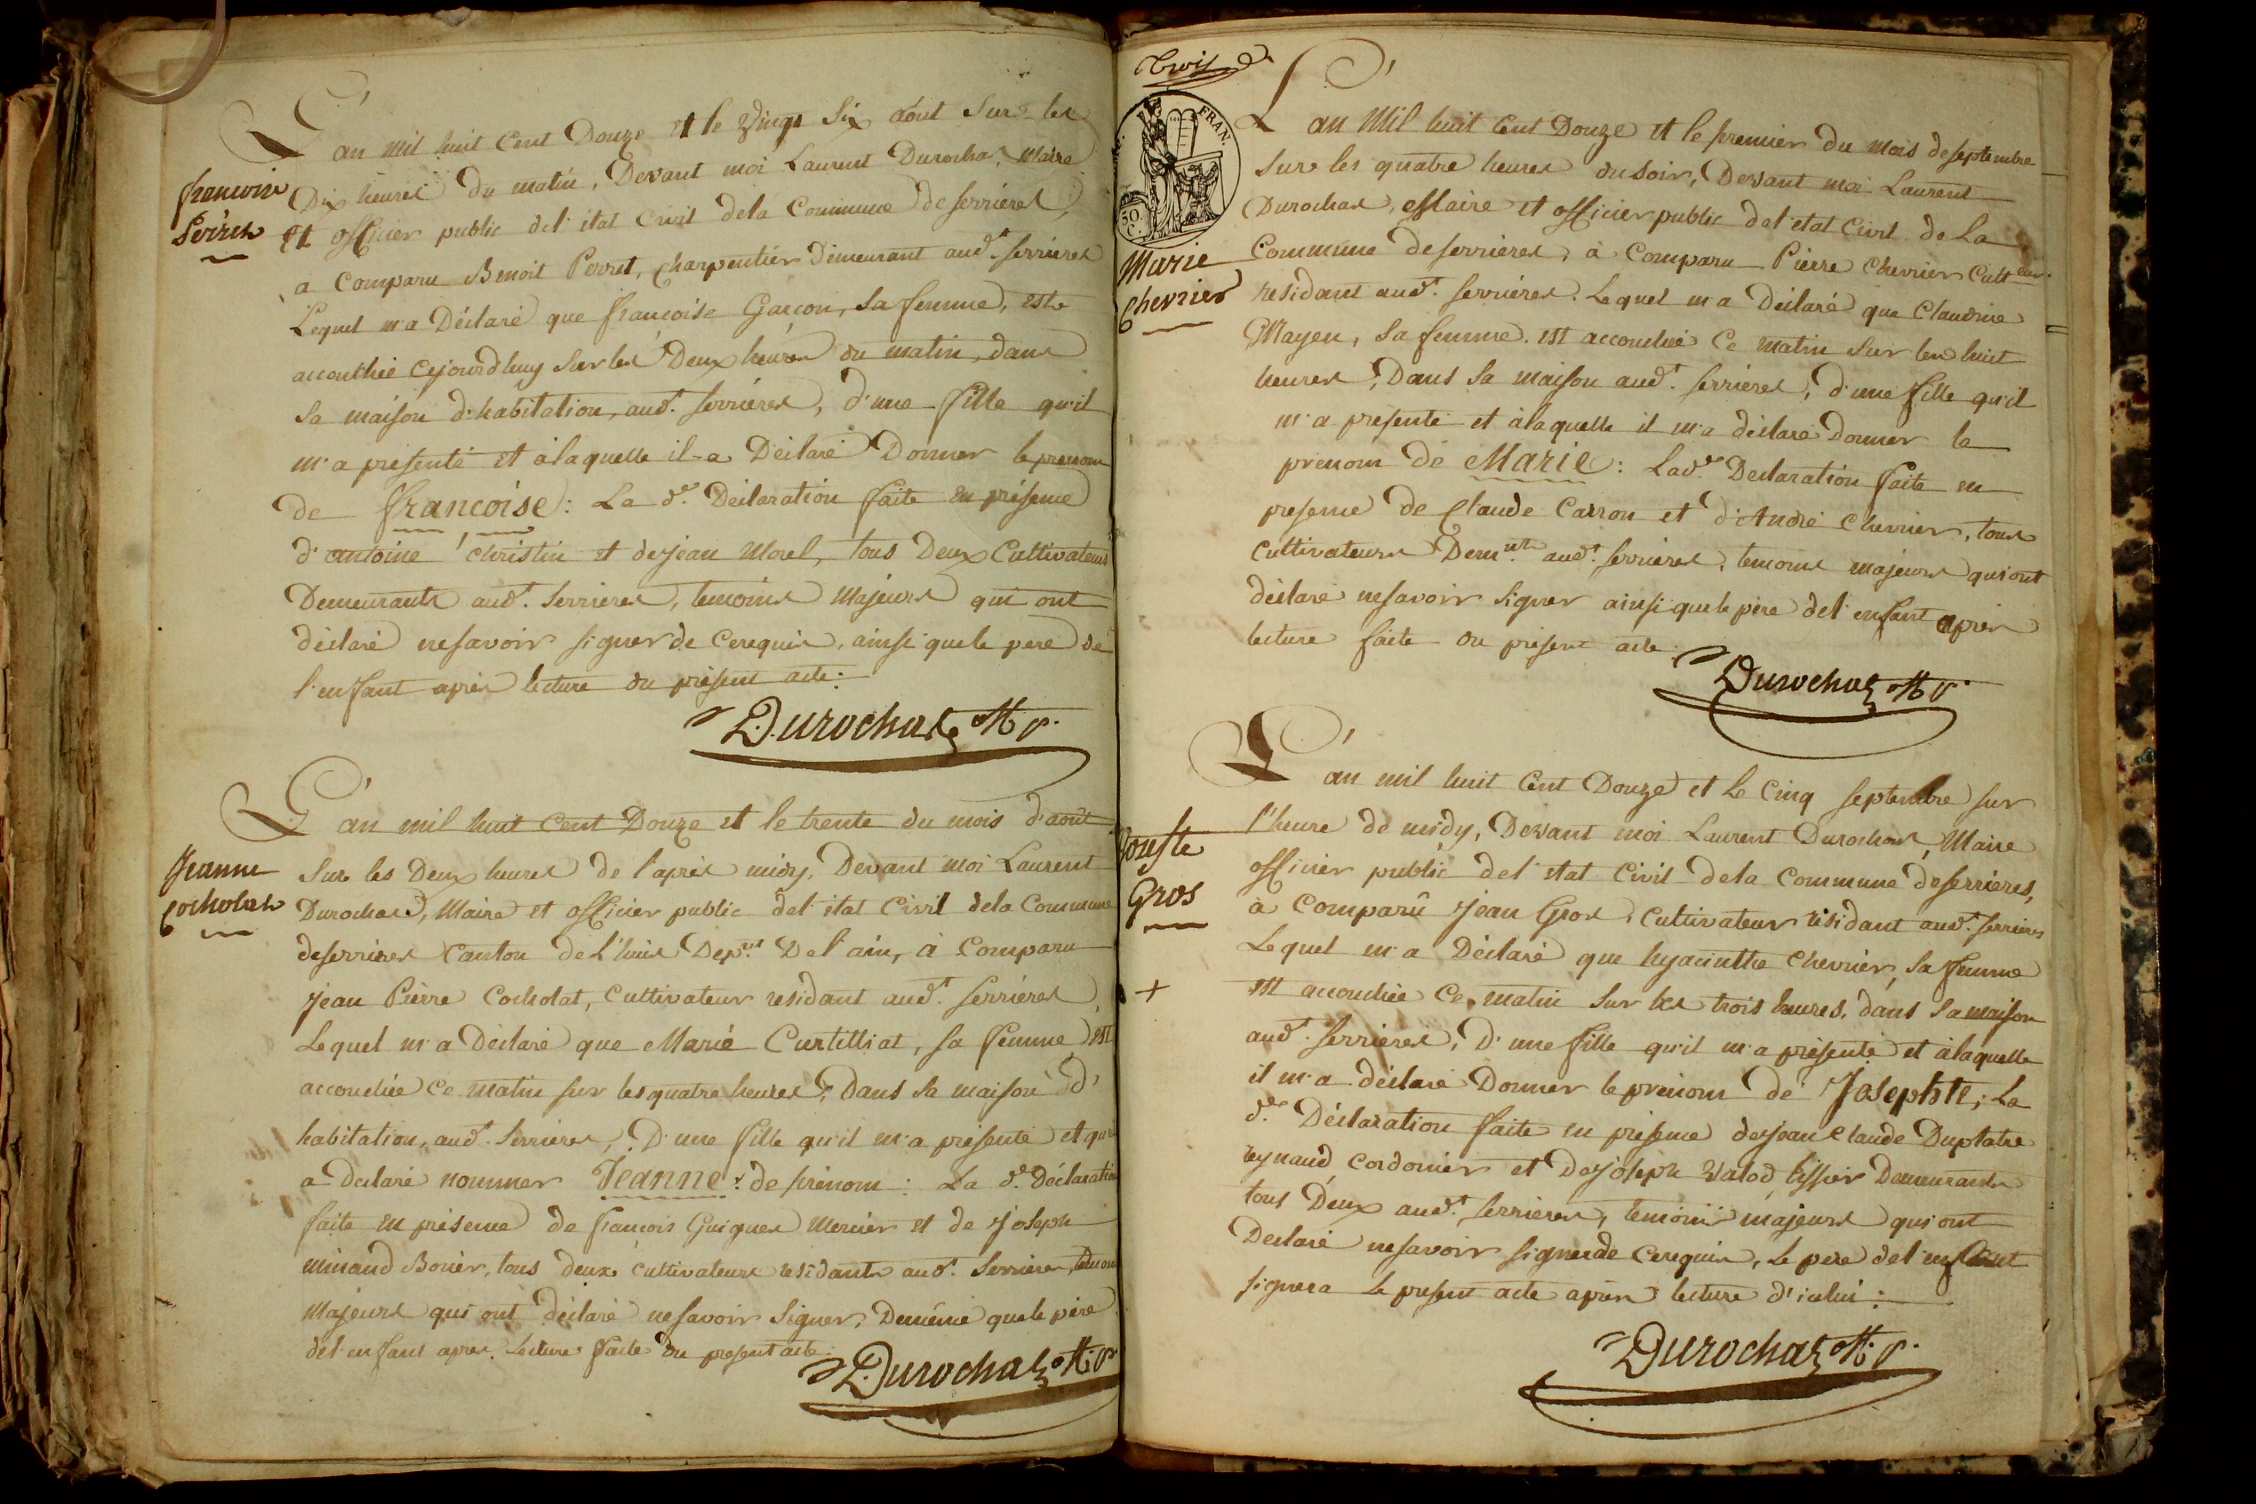 L'an mil huit Cent Douze et le Vingt Six août Sur les
françoise
Perret
Dix heures du matin, Devant moi Laurent Durochat, Maire
et officier public del'état Civil dela Commune de serrières,
a Comparu Benoit Perret, Charpentier Demeurant aud.t serrières
Lequel m'a Déclaré que françoise Garçon, sa femme, est
accouchée cejourd'huy Sur les Deux heures du matin, dans
sa maison d'habitation, aud.t serrières, d'une fille qu'il
m'a présenté et àlaquelle il a Déclaré Donner le prénom
de françoise: La d.e Déclaration faite en présence
d'antoine Christin et de jean Morel, tous Deux Cultivateurs
Demeurants aud.t Serrières, témoins Majeurs qui ont
déclaré nesavoir signer de cerequis, ainsi quele pere de
l'enfant après lecture du présent acte:
Durochat
L'an mil huit Cent Douze et le trente du mois d'août
Jeanne
Cocholat
Sur les Deux heures de l'après midy, Devant moi Laurent
Durochat, Maire et officier public del'état Civil dela Commune
deserrières Canton de L'huis Dep.nt Del'ain, à Comparu
jean Pierre Cocholat, Cultivateur residant aud.t serrières,
Lequel m'a Déclaré que Marie Curtilliat, sa femme est
accouchée ce matin sur les quatre heures, Dans sa maison d'
habitation, aud.t Serrières, D'une fille qu'il m'a présenté et
a Déclaré nommer Jeanne: de prénom: La d.e Déclaration
faite en présence de françois Guigues Mercier et de joseph
minaud Bovier, tous deux cultivateurs residants aud.t Serrières, témoins
Majeurs qui ont déclaré nesavoir signer, Demême quele père
del'enfant après Lecture faite du présent acte.
Durochat
Trois
FRAN.
50.
C.
L'an Mil huit Cent Douze et le premier du mois deseptembre
sur les quatre heures du soir, Devant moi Laurent
Durochat, Maire et officier public del'état Civil de La
Marie
Chevrier
Commune deserrières, à Comparu Pierre Chevrier Cult.eur
residant aud.t serrières. Lequel m'a Déclaré que Claudine
Mayeu, sa femme est accouchée Ce matin sur les huit
heures, Dans sa maison aud.t serrières, d'une fille qu'il
m'a présenté et àlaquelle il m'a déclaré Donner le
prénom de Marie: Lad.e Declaration faite en
presence de Claude Carron et d'André Chevrier, tous
Cultivateurs Dem.nts aud.t serrières, temoins majeurs qui ont
déclaré nesavoir signer ainsi quele père del'enfant après
lecture faite du présent acte.
Durochat
L'an mil huit Cent Douze et Le Cinq septembre sur
Josephte
Gros
+
l'heure de midy, Devant moi Laurent Durochat, Maire
officier public del'état Civil dela Commune deserrières,
à Comparû jean Gros, Cultivateur résidant aud.t serrières
Lequel m'a Déclaré que hyacinthe Chevrier, sa femme
est accouchée Ce matin sur les trois heures, dans sa maison
aud.t serrières, D'une fille qu'il m'a présenté et àlaquelle
il m'a déclaré Donner le prénom de Josephte; La
d.e Déclaration faite en présence de jean Claude Duplatre
reynaud, Cordonier et de joseph Valod tissier Demeurants
tous Deux aud.t serrières, temoins majeurs qui ont
Declaré nesavoir signer de cerequis, Le pere del'enfant
signera Le présent acte après lecture d'icelui:
Durochat